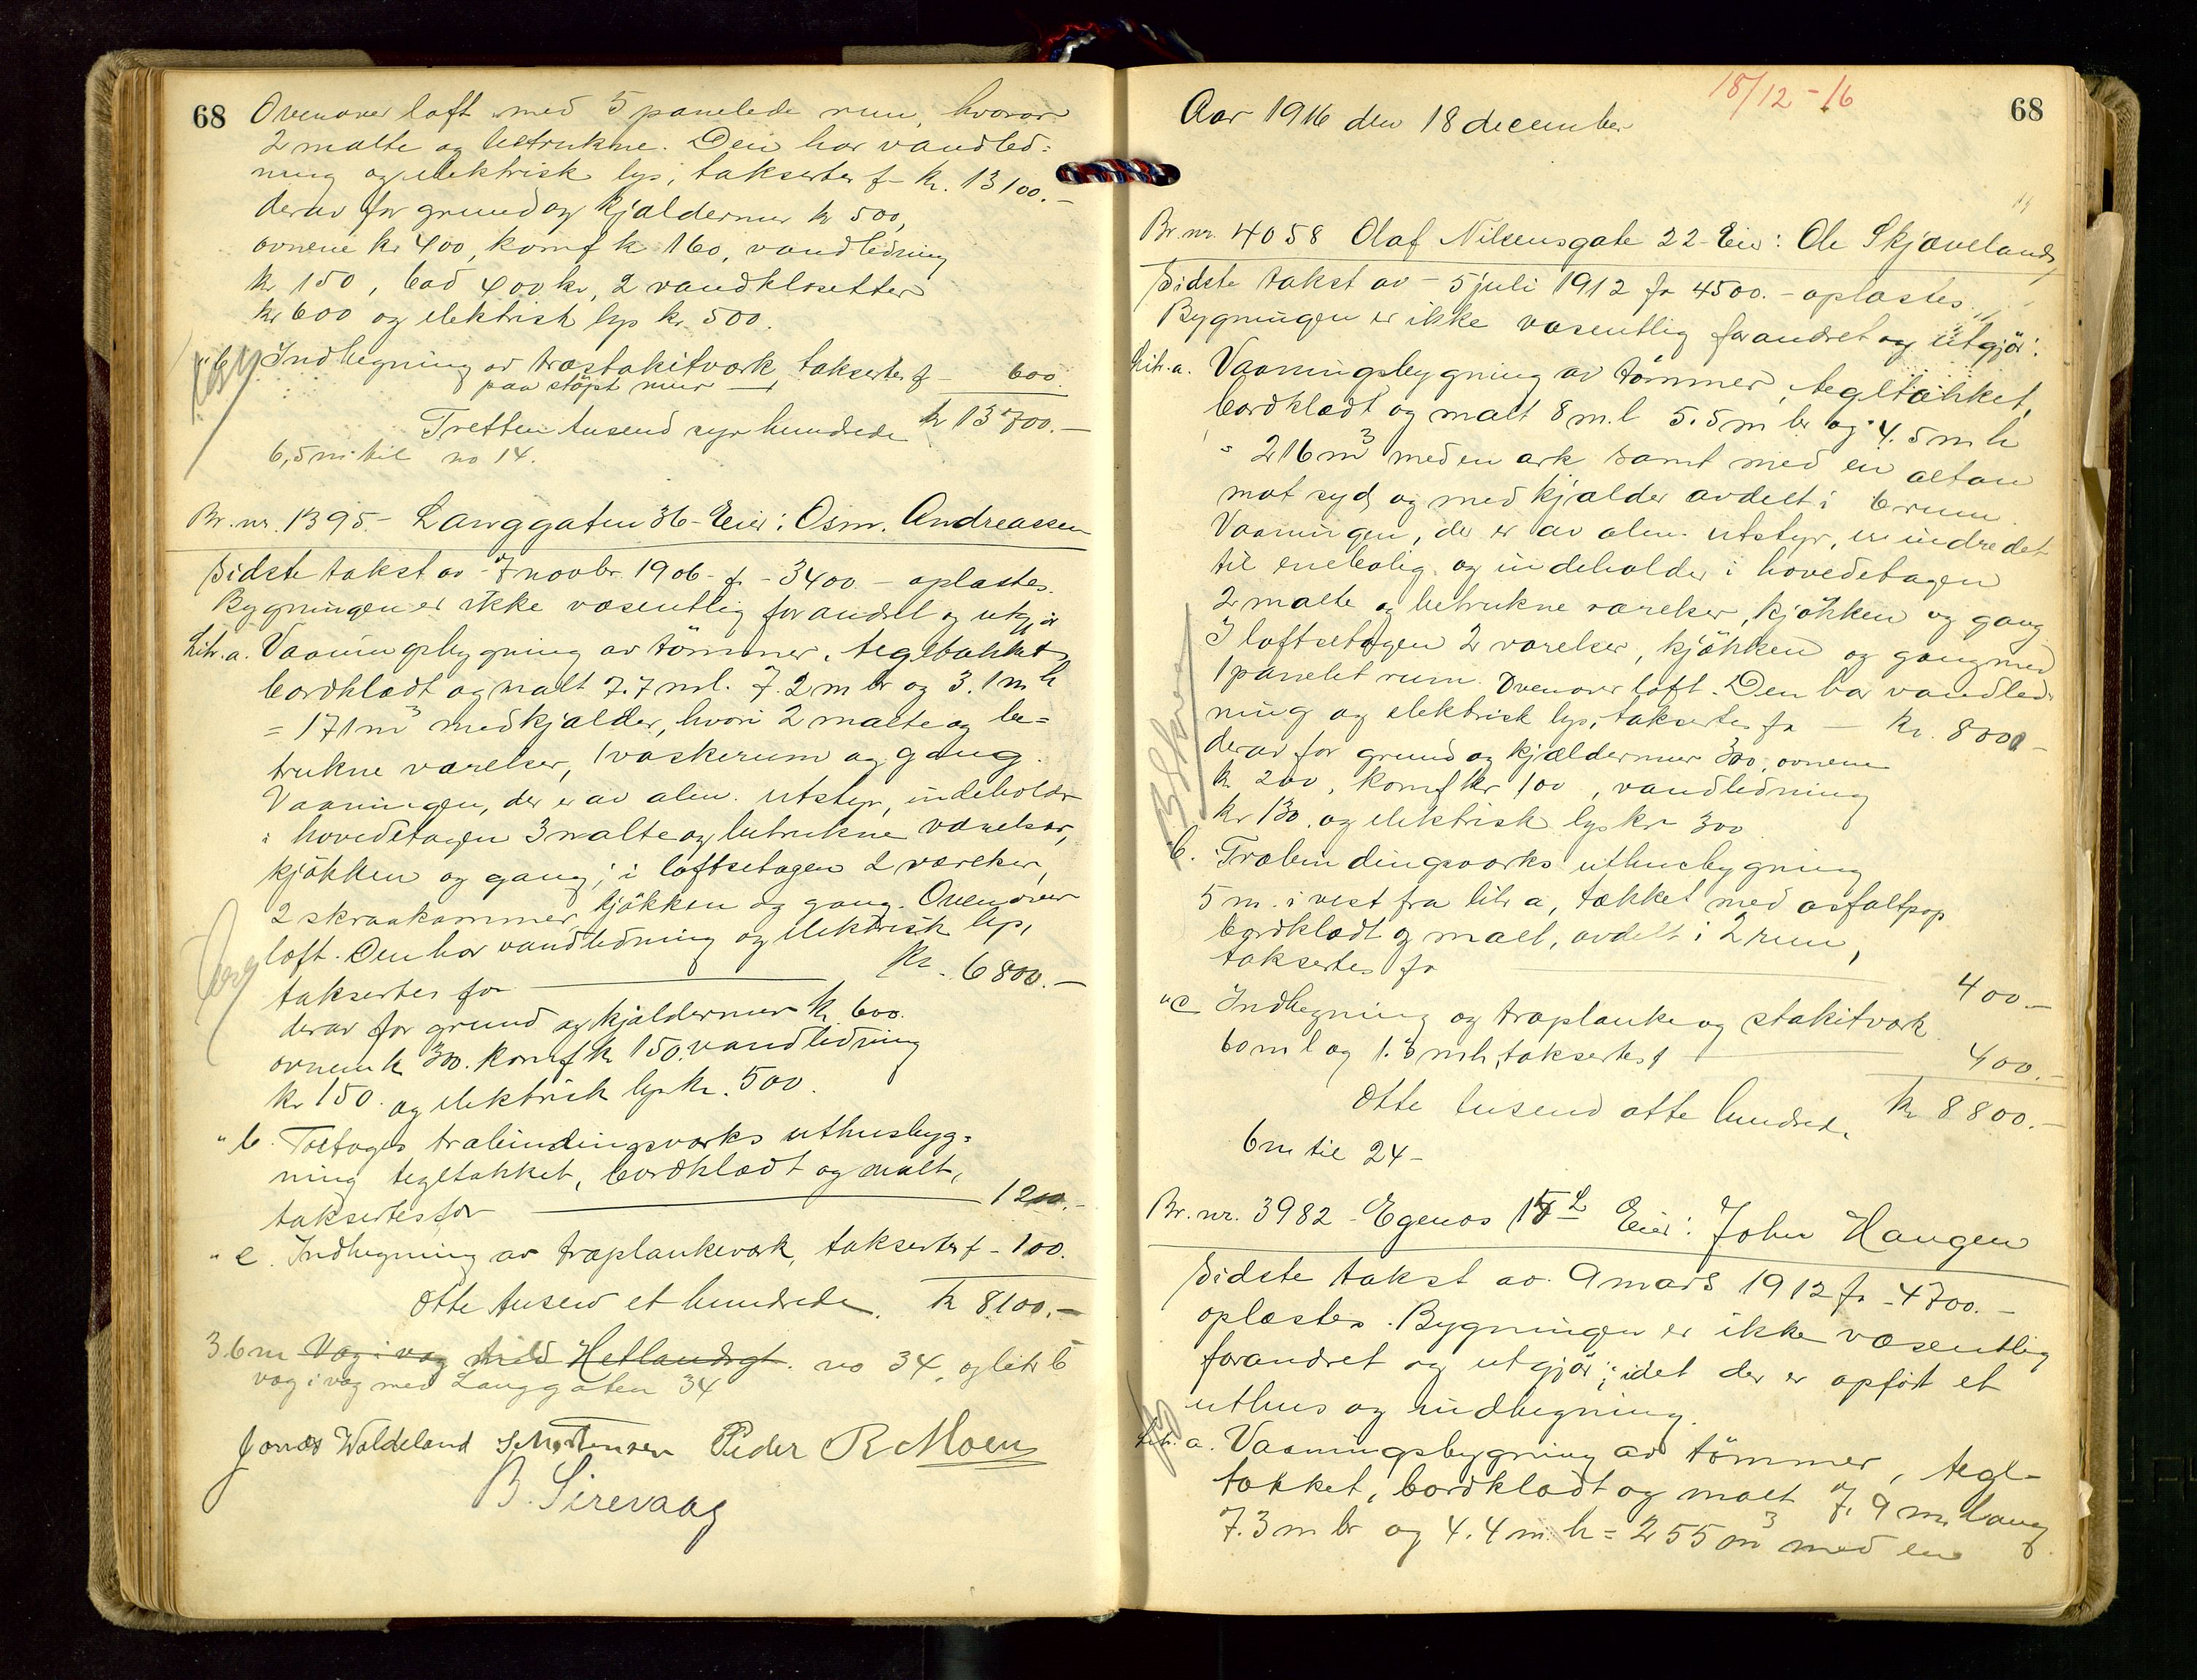 68
Ovenover loft med 5 panelede rum, hvorav
2 malte og betrukne. Den har vandled-
ning og elektrisk lys, taksertes f - kr. 13100.-
derav for grund og kjældermur kr 500,
ovnene kr 400, komf k 160, vandledning
kr 150, bad 400 kr, 2 vandklosetter
kr 600 og elektrisk lys kr. 500.
" b Indhegning av træstakitværk taksertes f - 600.
paa støpt mur
Tretten tusend syv hundrede kr 13700.-
6,5 m til no 14.
Br. nr. 1395.- Langgaten 36 - Eier: Osm. Andreassen
Sidste takst av - 7 novbr. 1906 - fr - 3400 - oplæstes.
Bygningen er ikke væsentlig forandret og utgjör
Litr. a. Vaaningsbygning av tömmer, tegltækket,
bordklædt og malt 7.7 m l. 7.2 m br og 3.1 m h
= 171 m³ med kjælder, hvori 2 malte og be-
trukne værelser, 1 vaskerum og gang.
Vaaningen, der er av alm. utstyr, indeholder
i hovedetagen 3 malte og betrukne værelser,
kjökken og gang; i loftsetagen 2 værelser,
2 skraakammer, kjökken og gang. Ovenover
loft. Den har vandledning og elektrisk lys,
taksertes for kr. 6800.-
derav for grund og kjældermur kr 600.
ovnene kr 300. komf kr 150. vandledning
kr 150. og elektrisk lys kr. 500.
" b. Toetages træbindingsværks uthusbyg-
ning tegltækket, bordklædt og malt,
taksertes for 1200.-
" c. Indhegning av træplankeværk, taksertes f - 100.
Otte tusend et hundrede. kr 8100.-
3.6 m Væg i væg med Hetlandsgt. no 34, og litr b
væg i væg med Langgaten 34
Jonas Waldeland S. Mortensen Peder R Moen
B. Sirevaag
18/12-16
68
Aar 1916 den 18 december
Br. nr. 4058 Olaf Nilsensgate 22 - Eier: Ole Skjæveland
Sidste takst av - 5 juli 1912 fr 4500.- oplæstes.
Bygningen er ikke væsentlig forandret og utgjör:
Litr. a. Vaaningsbygning av tömmer, tegltækket,
bordklædt og malt 8 m. l 5.5 m br og 4.5 m h
= 216 m³ med en ark samt med en altan
mot syd, og med kjælder avdelt i 6 rum.
Vaaningen, der er av alm. utstyr, er indredet
til enebolig og indeholder i hovedetagen
2 malte og betrukne værelser, kjökken og gang
I loftsetagen 2 værelser, kjökken og gang med
1 panelet rum. Ovenover loft. Den har vandled-
ning og elektrisk lys, taksertes fr - kr. 8000 -
derav for grund og kjældermur 300, ovnene
kr. 200, komf kr 100, vandledning
kr 130. og elektrisk lys kr 300
" b. Træbindingsværks uthusbygning
5 m. i vest fra litr a, tækket med asfaltpap
bordklædt og malt, avdelt i 2 rum,
taksertes fr 400.-
" c Indhegning og træplanke og stakitværk
60 m l og 1.3 m h, taksertes f 400.-
Otte tusend otte hundrede kr 8800.-
6 m til 24 -
Br. nr. 3982 - Egenæs 15 L Eier: John Haugen
Sidste takst av. 9 mars 1912 fr - 4700.-
oplæstes. Bygningen er ikke væsentlig
forandret og utgjör; idet der er opfört et
uthus og indhegning.
Litr. a. Vaaningsbygning av tömmer, tegl-
tækket, bordklædt og malt 7.9 m lang
7.3 m br og 4.4 m h = 255 m³ med en